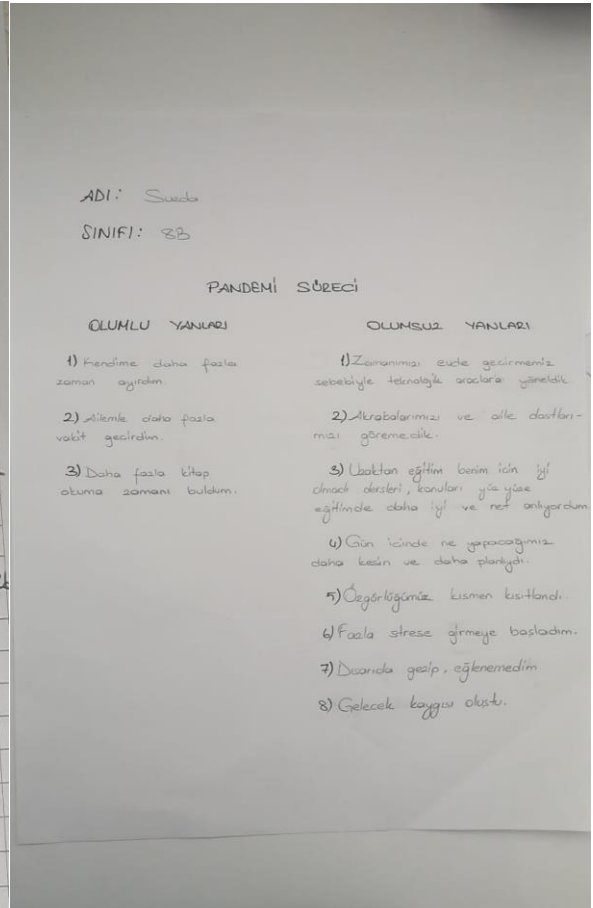 ADI: Sueda
SINIFI: 8B
PANDEMİ SÜRECİ
OLUMLU YANLARI
1) Kendime daha fazla
zaman ayırdım.
2) Ailemle daha fazla
vakit geçirdim.
3) Daha fazla kitap
okuma zamanı buldum.
OLUMSUZ YANLARI
1) Zamanımızı evde geçirmemiz
sebebiyle teknolojik araçlara yöneldik
2) Akrabalarımızı ve aile dostları-
mızı göremedik.
3) Uzaktan eğitim benim için iyi
olmadı dersleri, konuları yüz yüze
eğitimde daha iyi ve net anlıyordum
4) Gün içinde ne yapacağımız
daha kesin ve daha planlıydı.
5) Özgürlüğümüz kısmen kısıtlandı.
6) Fazla strese girmeye başladım.
7) Dışarıda gezip, eğlenemedim
8) Gelecek kaygısı oluştu.